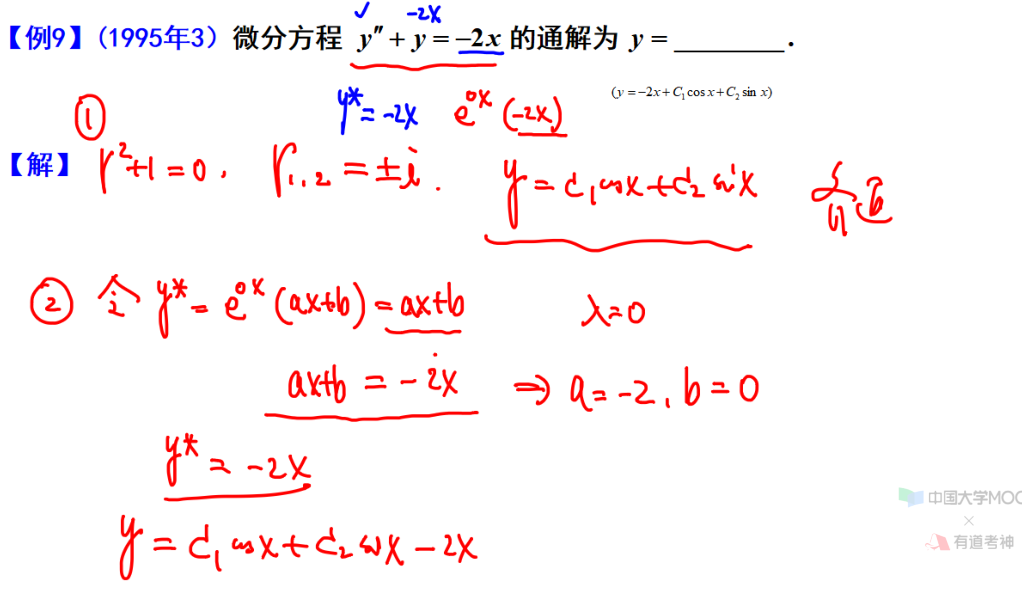 ✓ -2x
【例9】(1995年3) 微分方程 y″ + y = −2x 的通解为 y = ________.
(y = −2x + C₁ cos x + C₂ sin x)
① y* = -2x e^{0x} (-2x)
【解】 r² + 1 = 0, r₁,₂ = ±i. y = C₁ cos x + C₂ sin x 通
② 令 y* = e^{0x} (ax+b) = ax+b λ = 0
ax+b = -2x ⇒ a = -2, b = 0
y* = -2x
y = C₁ cos x + C₂ sin x - 2x
中国大学MOO
×
有道考神